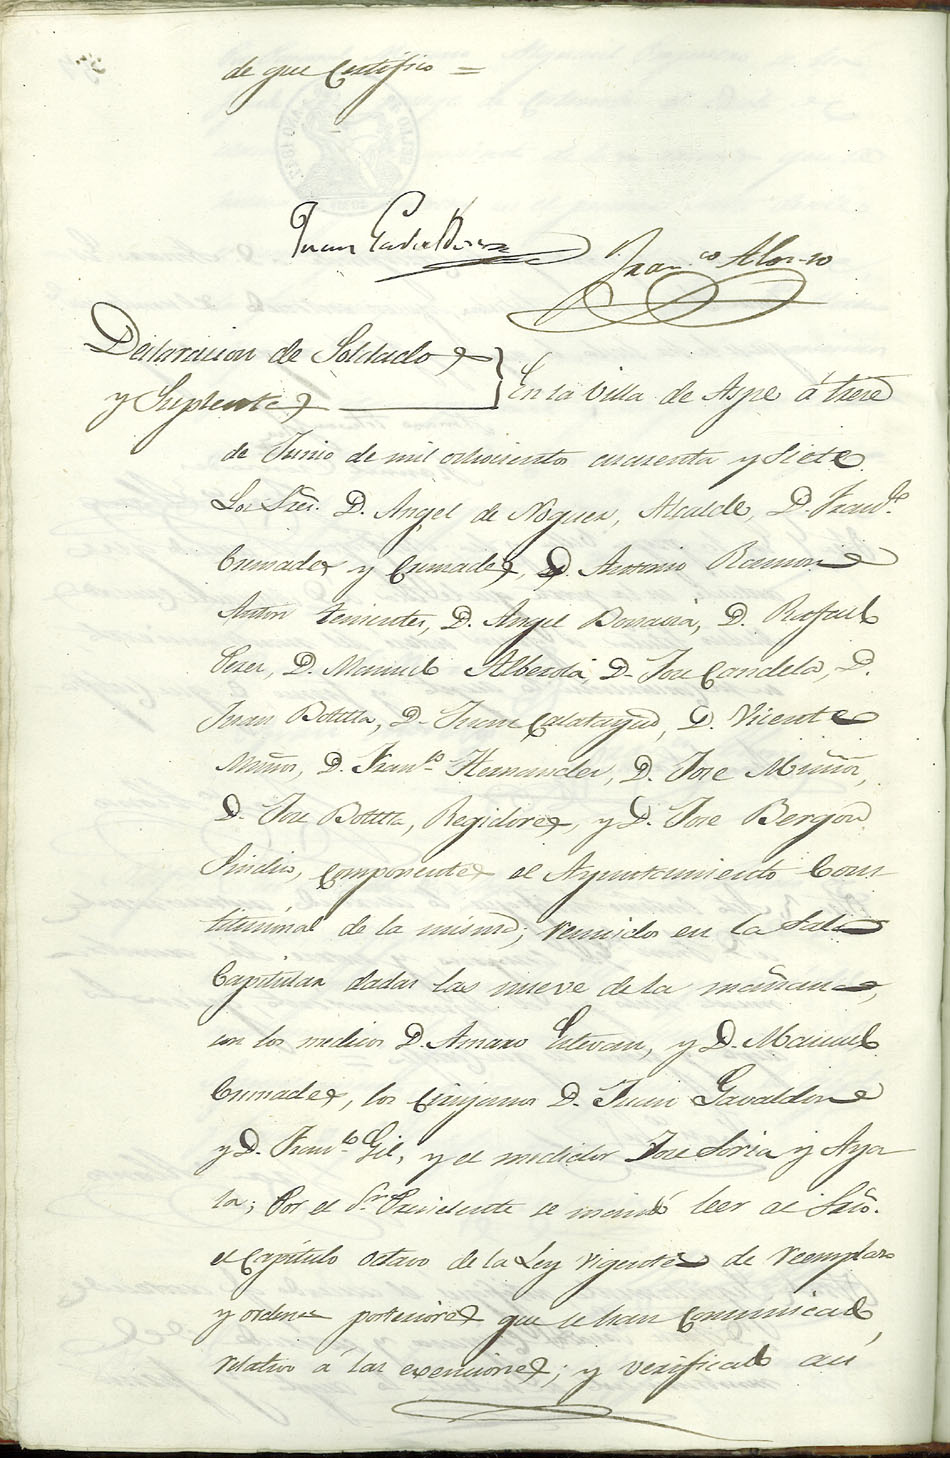 de que Certifico =
Juan
Fran.co Alonso
Declaracion de Soldados
y Suplentes
En la Villa de Aspe á trece
de Junio de mil ochocientos cuarenta y siete
Los Sres. D. Angel de Noguer, Alcalde, D. Franco.
Cremades y Cremades, D. Antonio Ramon
Anton tenientes, D. Angel D. Rafael
Perez, D. Manuel Alberola, D. Jose Candela, D.
Juan Botella, D. Juan Calatayud, D. Vicente
Muñoz, D. Franco. Hernandez, D. Jose Muñoz,
D. Jose Botella, Regidores, y D. Jose
Sindico, componentes el Ayuntamiento Cons
titucional de la misma; reunidos en la Sala
Capitular dadas las nueve de la mañana,
con los medicos D. Amaro Estevan, y D. Manuel
Cremades, los Cirujanos D. Juan Gavaldon
y D. Franco. Gil, y el medidor Jose Soria y Aya
la; Por el Sr. Presidente se mandó leer al Srio.
el Capitulo octavo de la Ley vigente de reemplazo
y ordenes posteriores que se han comunicado
relativo á las exenciones; y verificado asi